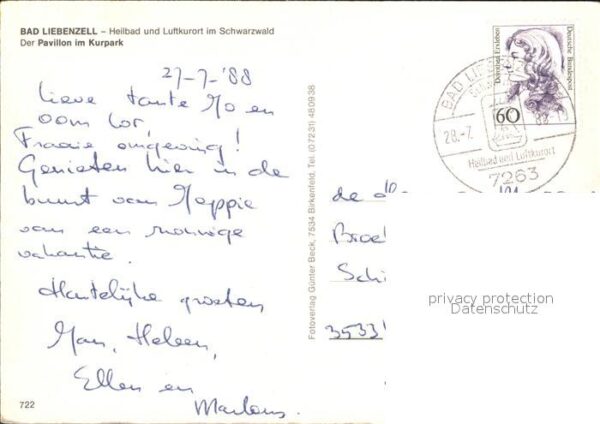 BAD LIEBENZELL – Heilbad und Luftkurort im Schwarzwald
Der Pavillon im Kurpark
27-7-'88
Lieve tante Jo en
oom Cor,
Fraaie omgeving!
Genieten hier in de
buurt van Nappie
van een rustige
vakantie.
Hartelijke groeten
Han, Heleen,
Ellen en
Marleen.
722
Fotoverlag Günter Beck, 7534 Birkenfeld, Tel. (07231) 480938
Dorothea Erxleben
Deutsche Bundespost
60
BAD LIEBENZELL
28.-7. 88
Heilbad und Luftkurort
7263
de
Broe
Sch
3533
privacy protection
Datenschutz